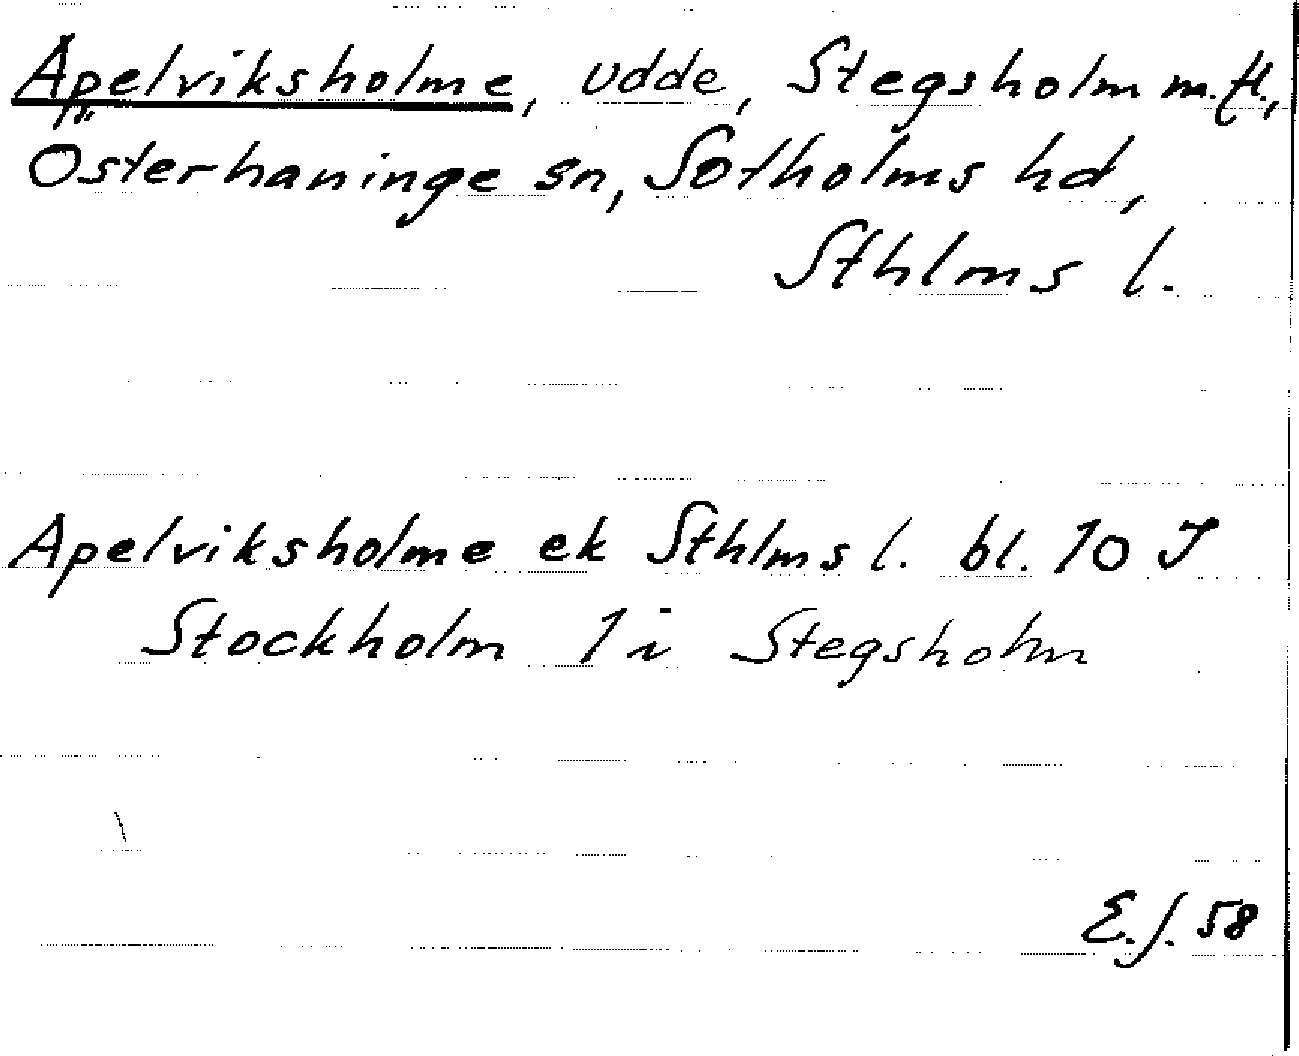 Apelviksholme, udde, Stegsholm m.fl.,
Österhaninge sn, Sotholms hd,
Sthlms l.
Apelviksholme ek Sthlms l. bl. 10 J
Stockholm 1 i Stegsholm
E.J. 58